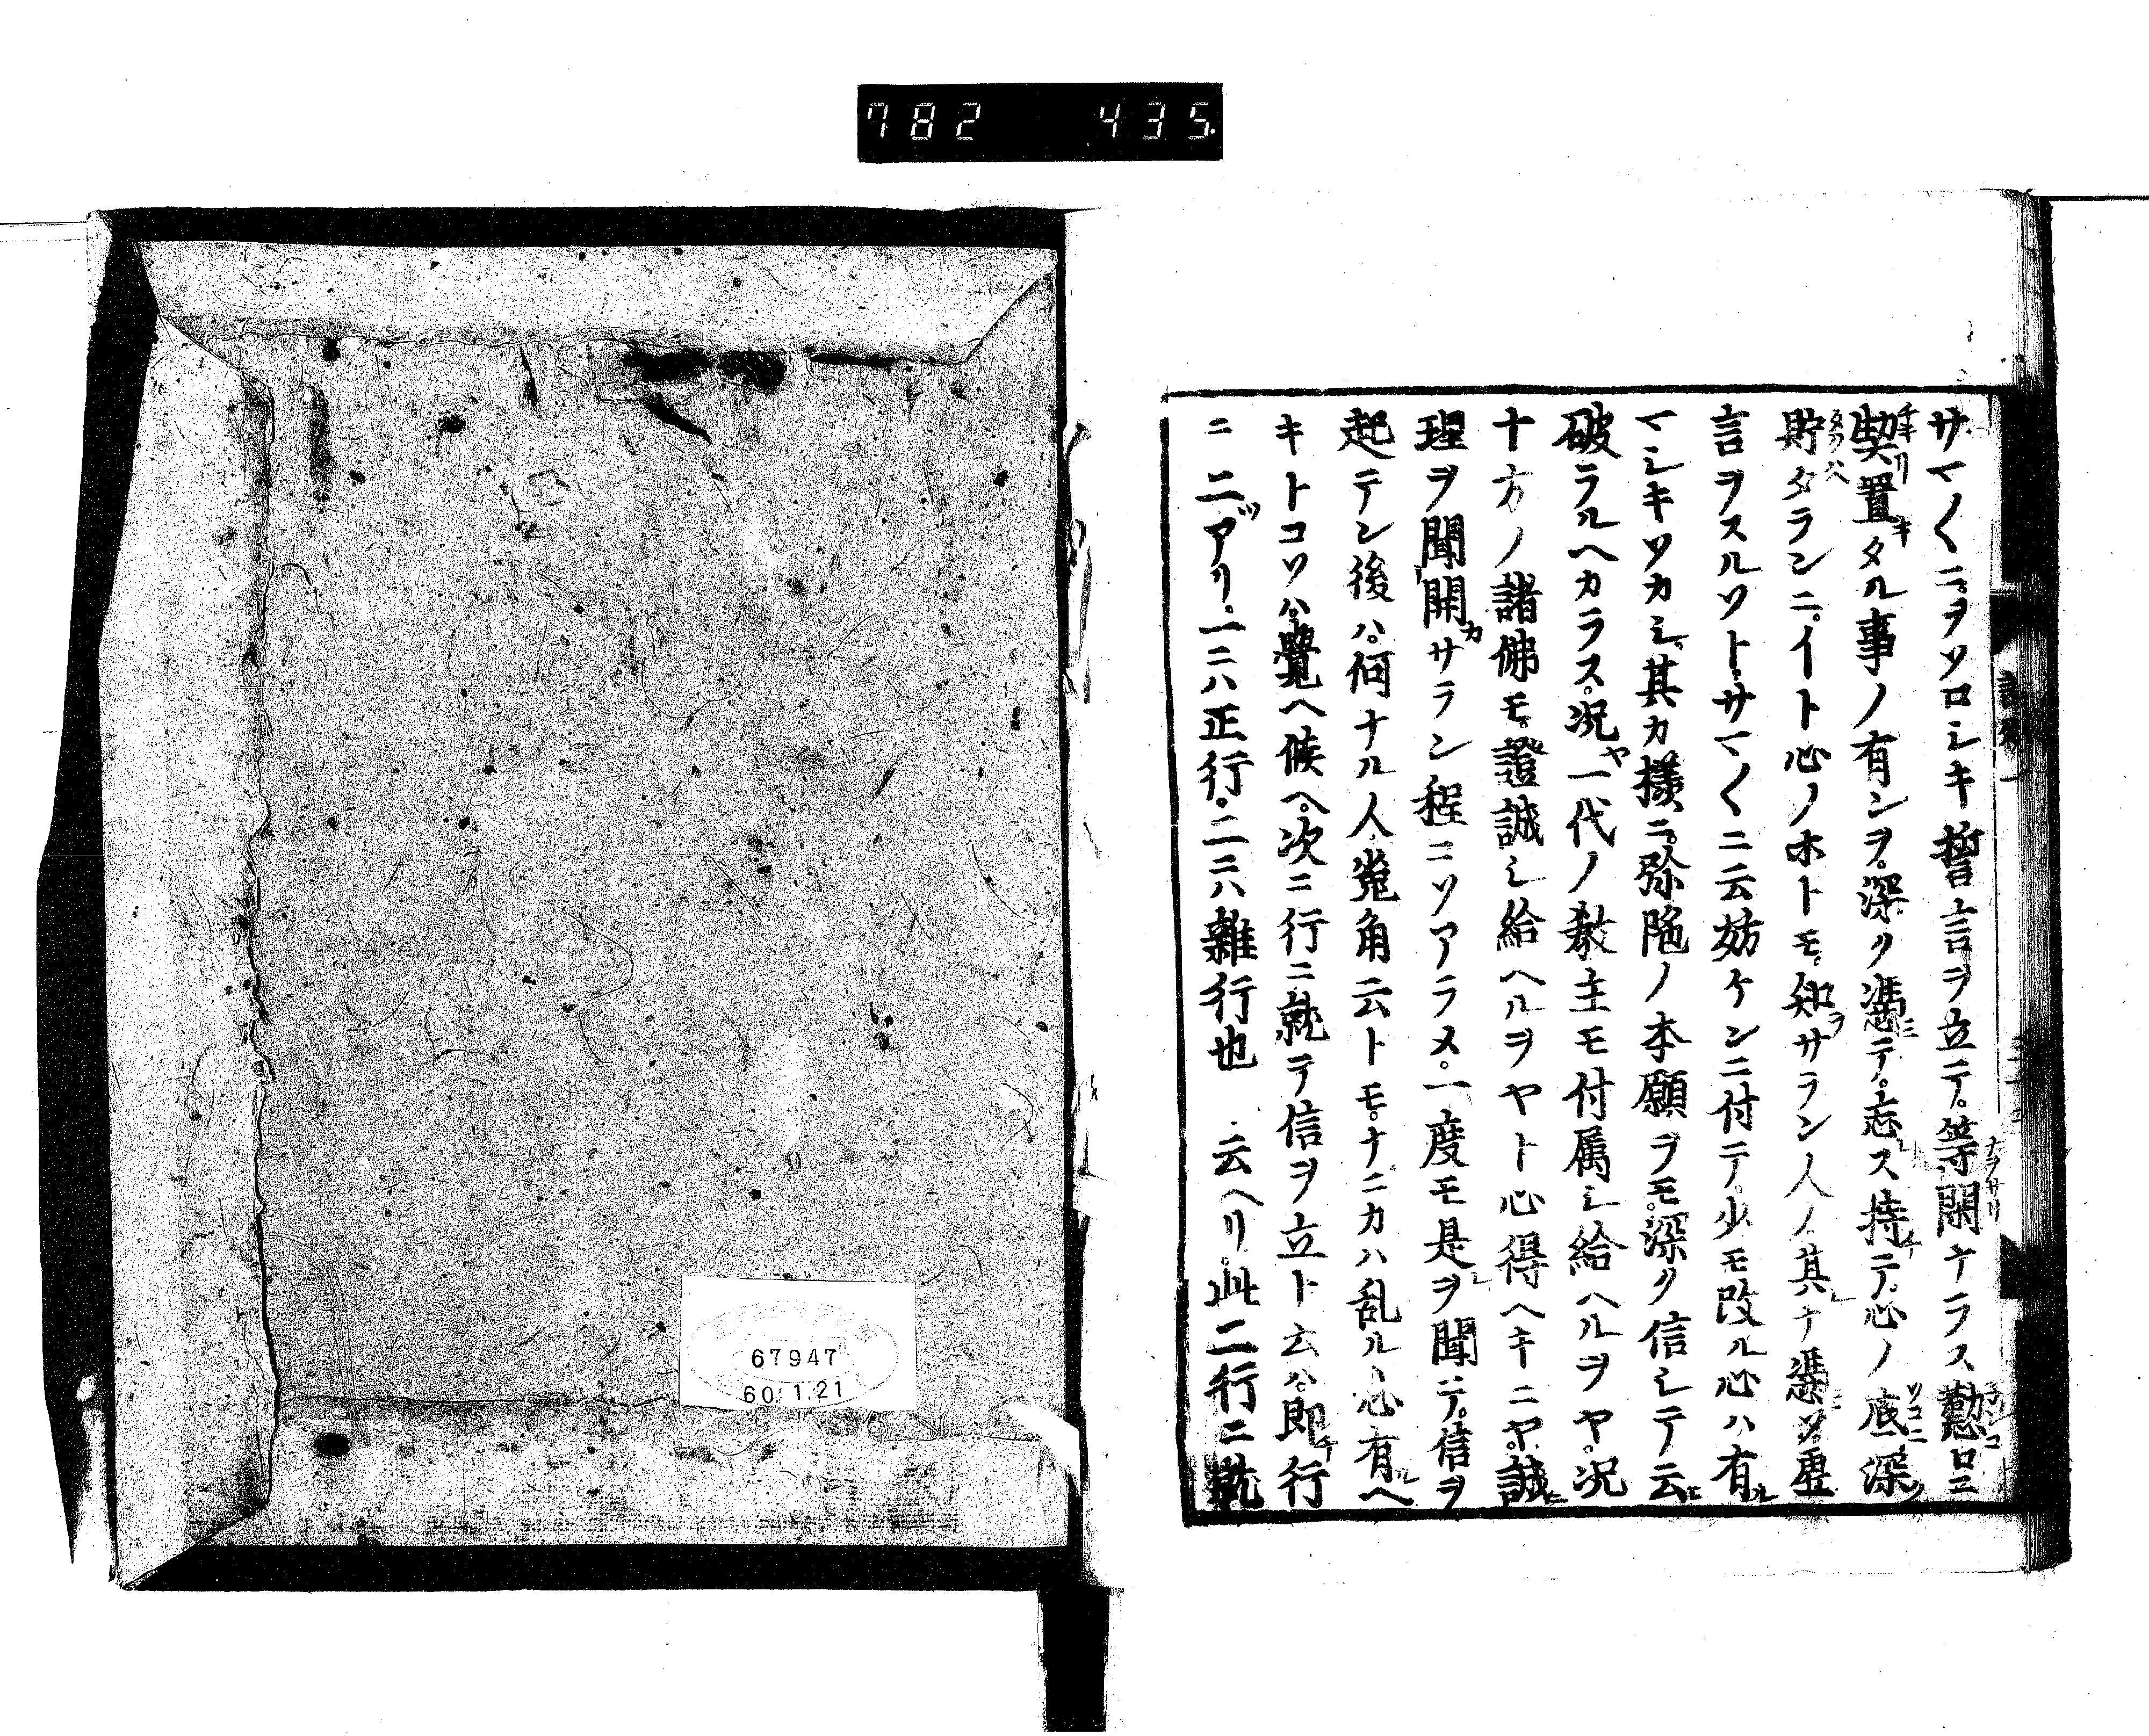 782 435
サマ〱ニ。ヲソロシキ誓言ヲ立テ。等閑ナラス懃ロニ
契置タル事ノ有ンヲ。深ク憑テ。忘ス持テ。心ノ底深
貯タランニ。イト心ノホトモ。知サラン人ノ。其ナ憑ソ。虚
言ヲスルソト。サマ〱ニ云妨ケンニ付テ。少モ改ル心ハ有
マシキソカシ。其カ様ニ。弥陀ノ本願ヲモ。深ク信シテ云
破ラルヘカラス。況一代ノ教主モ付属シ給ヘルヲヤ。況
十方ノ諸佛モ。證誠シ給ヘルヲヤト心得ヘキニヤ。誠
理ヲ聞開サラン程ニソアラメ。一度モ是ヲ聞テ。信ヲ
起テン後ハ。何ナル人兎角云トモ。ナニカハ乱ル心有ヘ
キトコソハ。覺ヘ候ヘ。次ニ行ニ就テ信ヲ立ト云ハ。即行
ニ二アリ。一ニハ正行。二ニハ雜行也 云ヘリ。此二行ニ就
67947
60.1.21